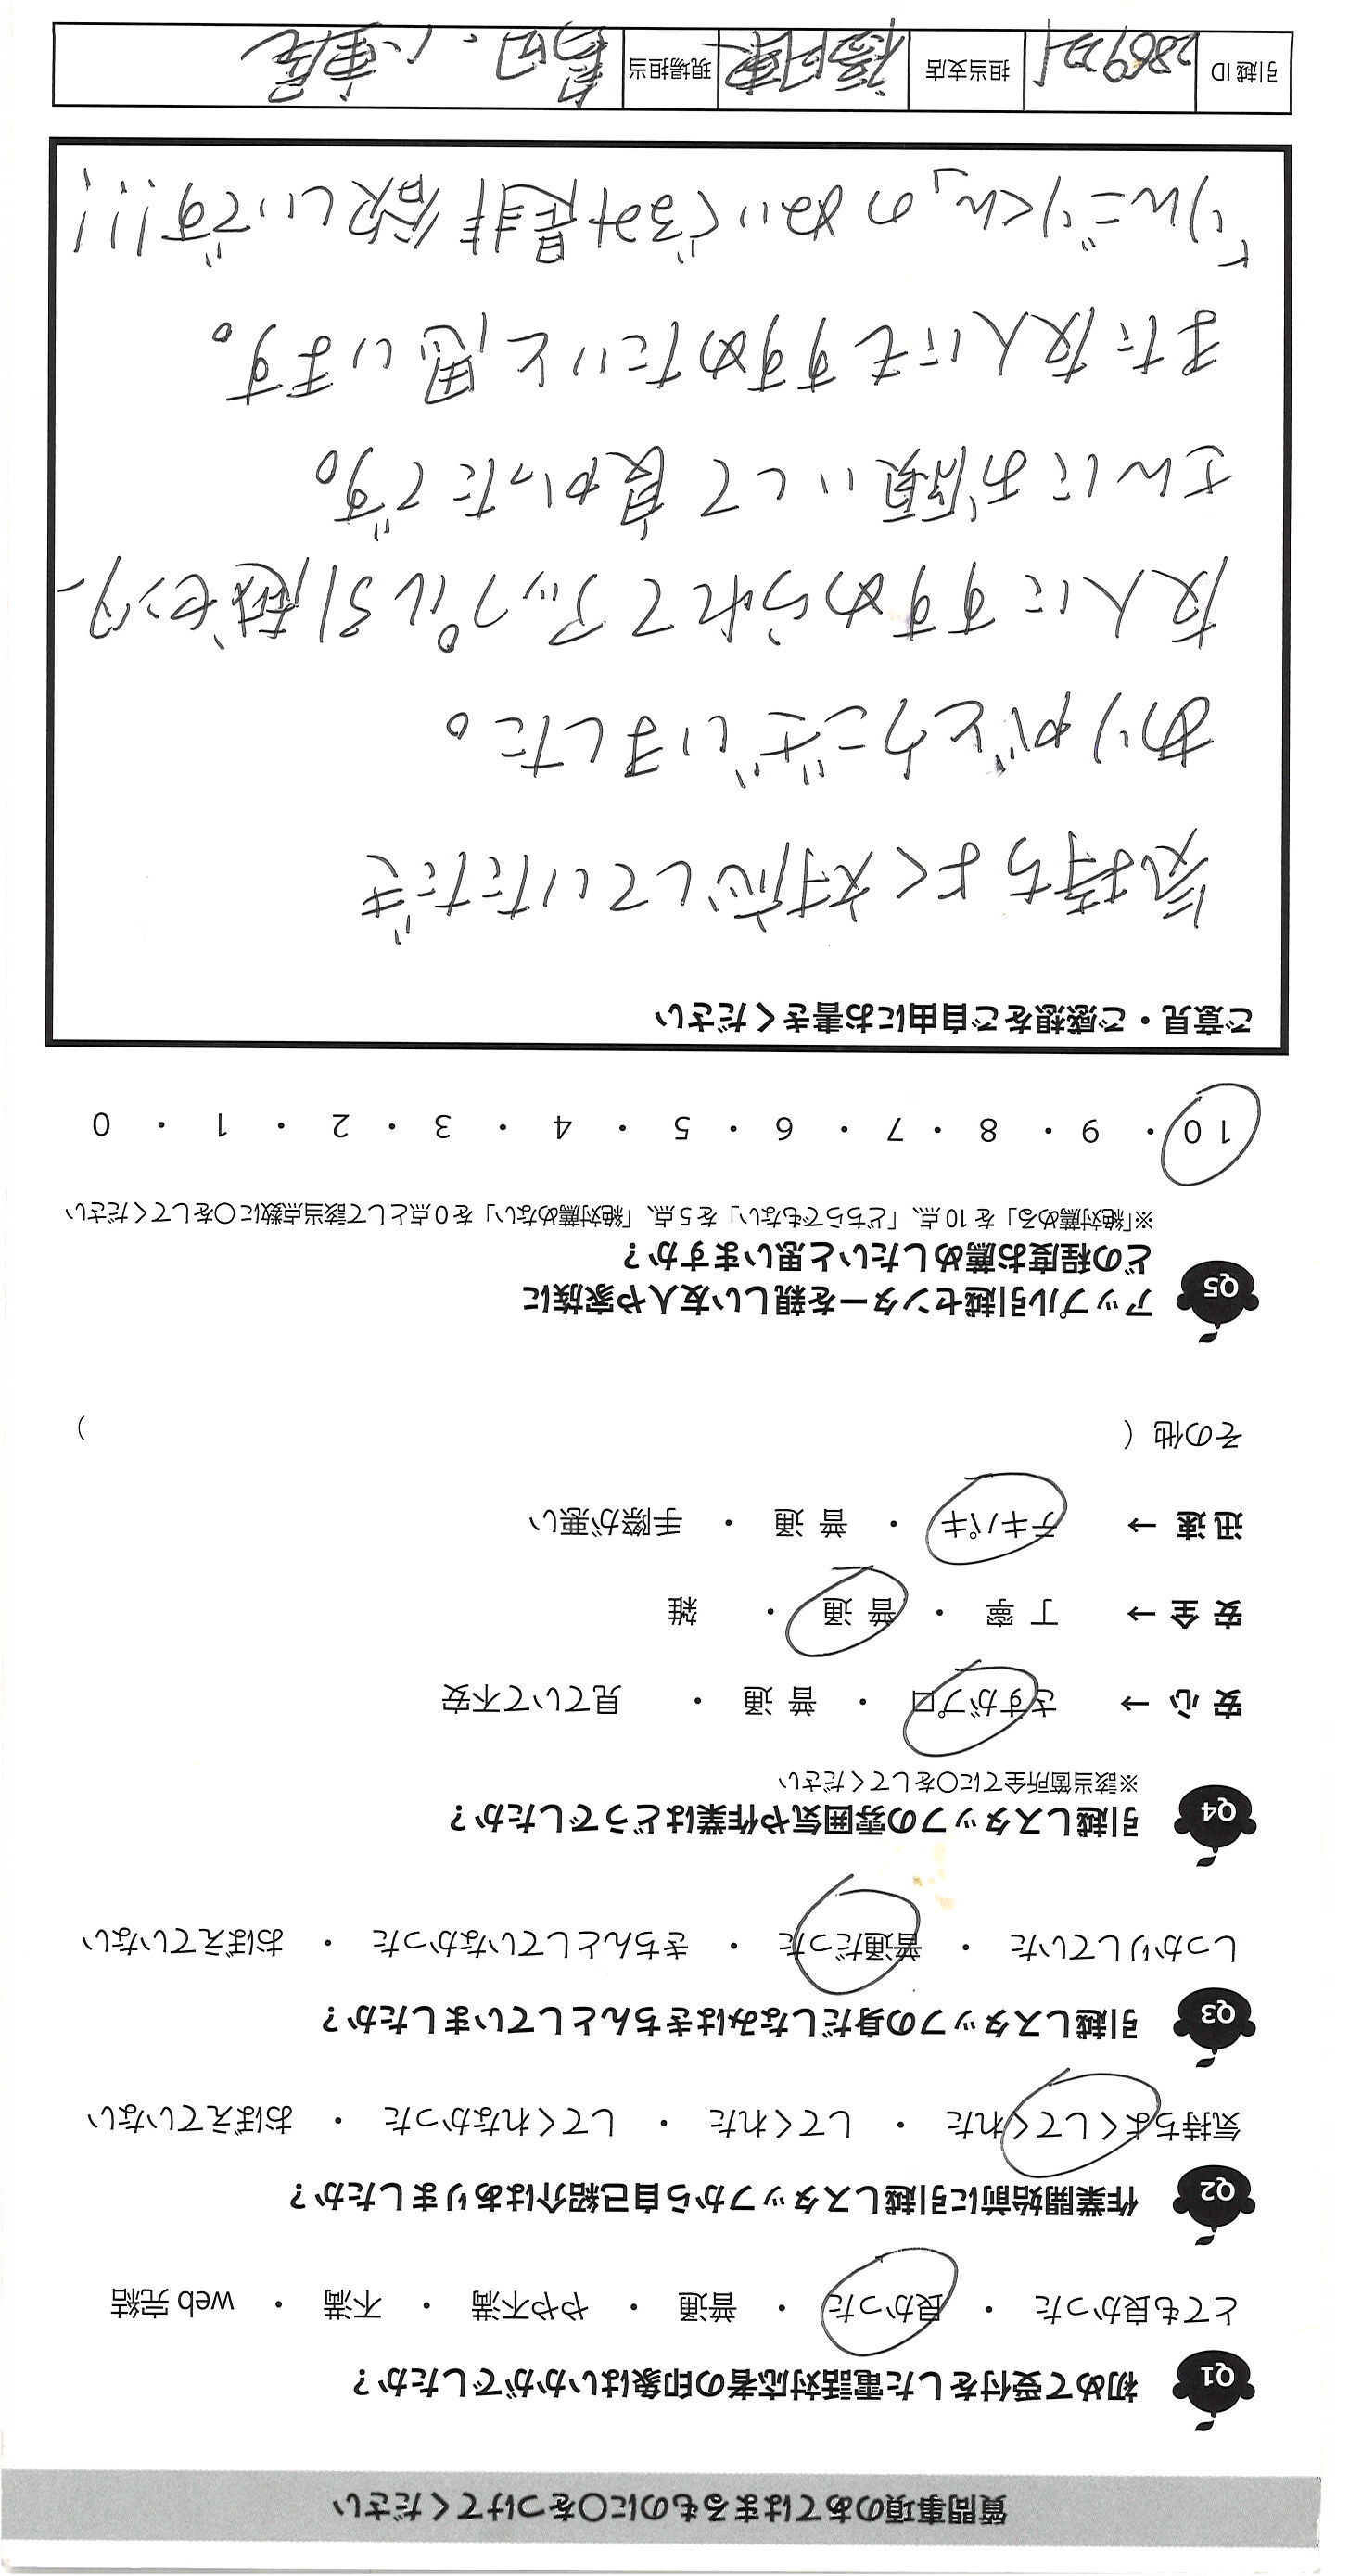 質問事項のあてはまるものに〇をつけてください
Q1 初めて受付をした電話対応者の印象はいかがでしたか？
とても良かった ・ 良かった ・ 普通 ・ やや不満 ・ 不満 ・ web 完結
Q2 作業開始前に引越しスタッフから自己紹介はありましたか？
気持ちよくしてくれた ・ してくれた ・ してくれなかった ・ おぼえていない
Q3 引越しスタッフの身だしなみはきちんとしていましたか？
しっかりしていた ・ 普通だった ・ きちんとしていなかった ・ おぼえていない
Q4 引越しスタッフの雰囲気や作業はどうでしたか？
※該当箇所全てに〇をしてください
安心 → さすがプロ ・ 普通 ・ 見ていて不安
安全 → 丁寧 ・ 普通 ・ 雑
迅速 → テキパキ ・ 普通 ・ 手際が悪い
その他（ ）
Q5 アップル引越センターを親しい友人や家族に
どの程度お薦めしたいと思いますか？
※「絶対薦める」を 10 点、「どちらでもない」を 5 点、「絶対薦めない」を 0 点として該当点数に〇をしてください
10 ・ 9 ・ 8 ・ 7 ・ 6 ・ 5 ・ 4 ・ 3 ・ 2 ・ 1 ・ 0
ご意見・ご感想をご自由にお書きください
気持ちよく対応していただき
ありがとうございました。
友人にすすめられてアップル引越センター
さんにお願いして良かったです。
また友人にもすすめたいと思います。
「りんごりくん」のぬいぐるみ是非欲しいです!!!
引越 ID 担当支店 現場担当